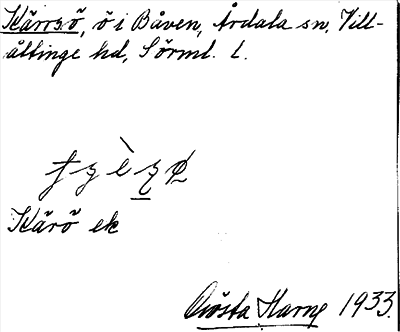 Kärrsö, ö i Båven, Årdala sn, Vill-
åttinge hd, Sörml. l.
Kärö ek
Gösta Harne 1933.